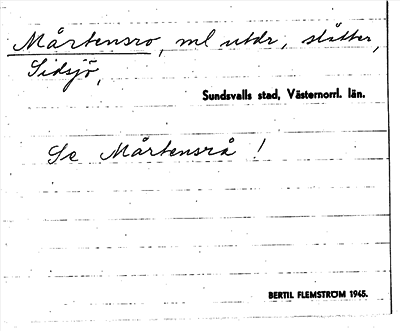 Mårtensro, ml utdr, slåtter,
Sidsjö,
Sundsvalls stad, Västernorrl. län.
Se Mårtensrå !
BERTIL FLEMSTRÖM 1945.